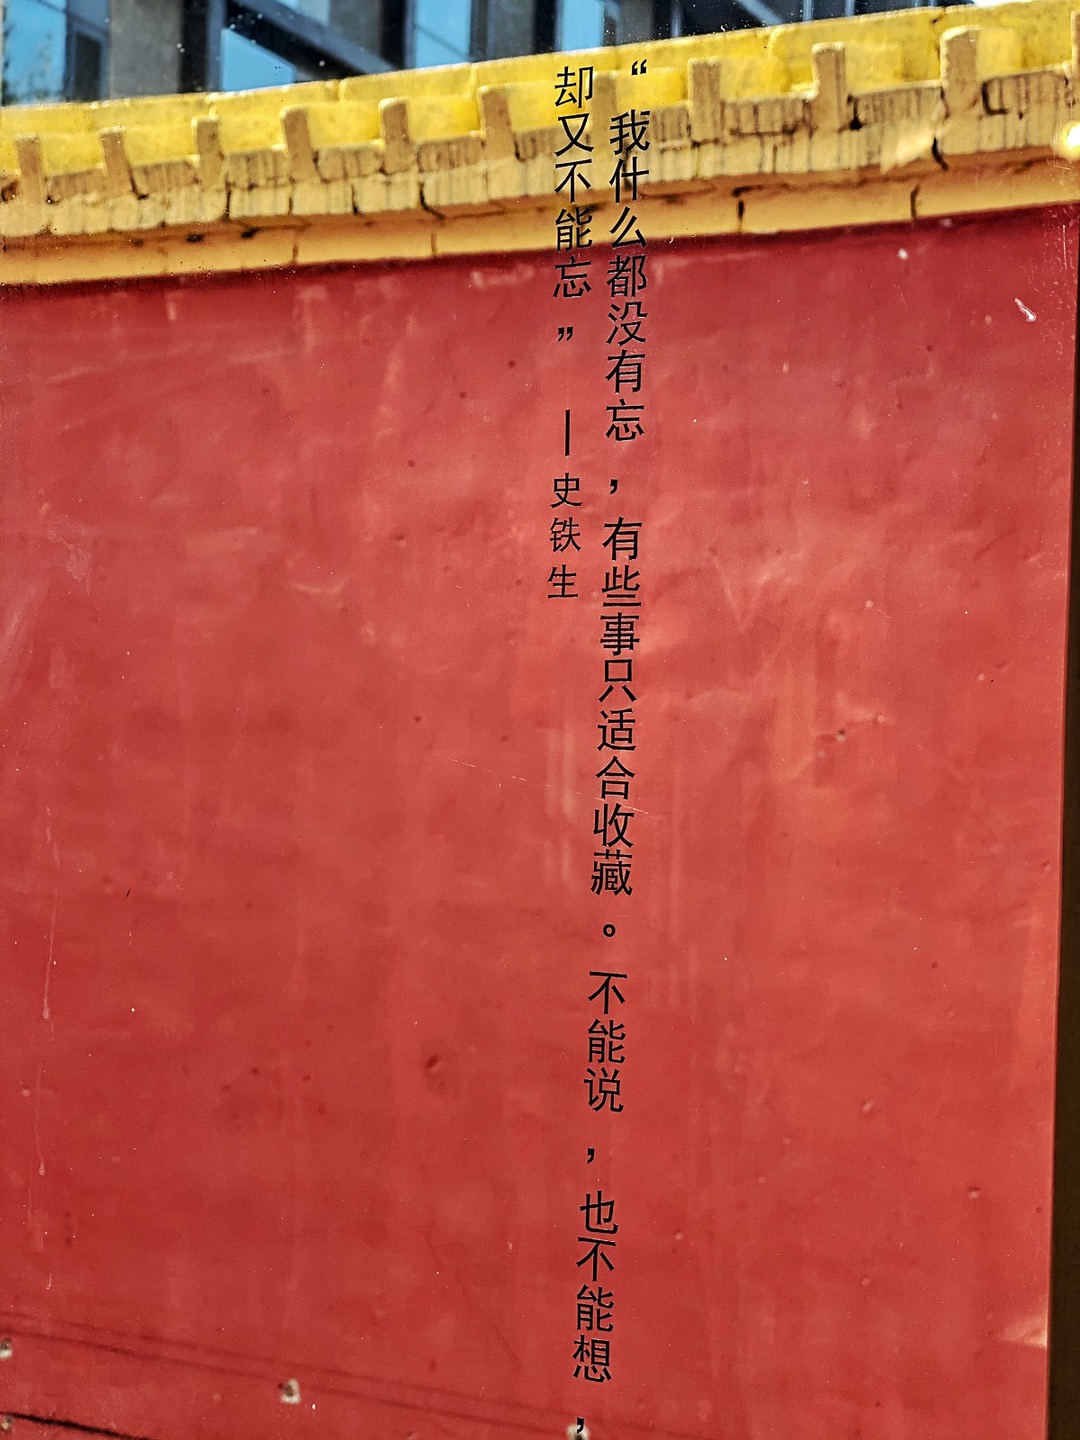 “我什么都没有忘，有些事只适合收藏。不能说，也不能想，
却又不能忘”—史铁生